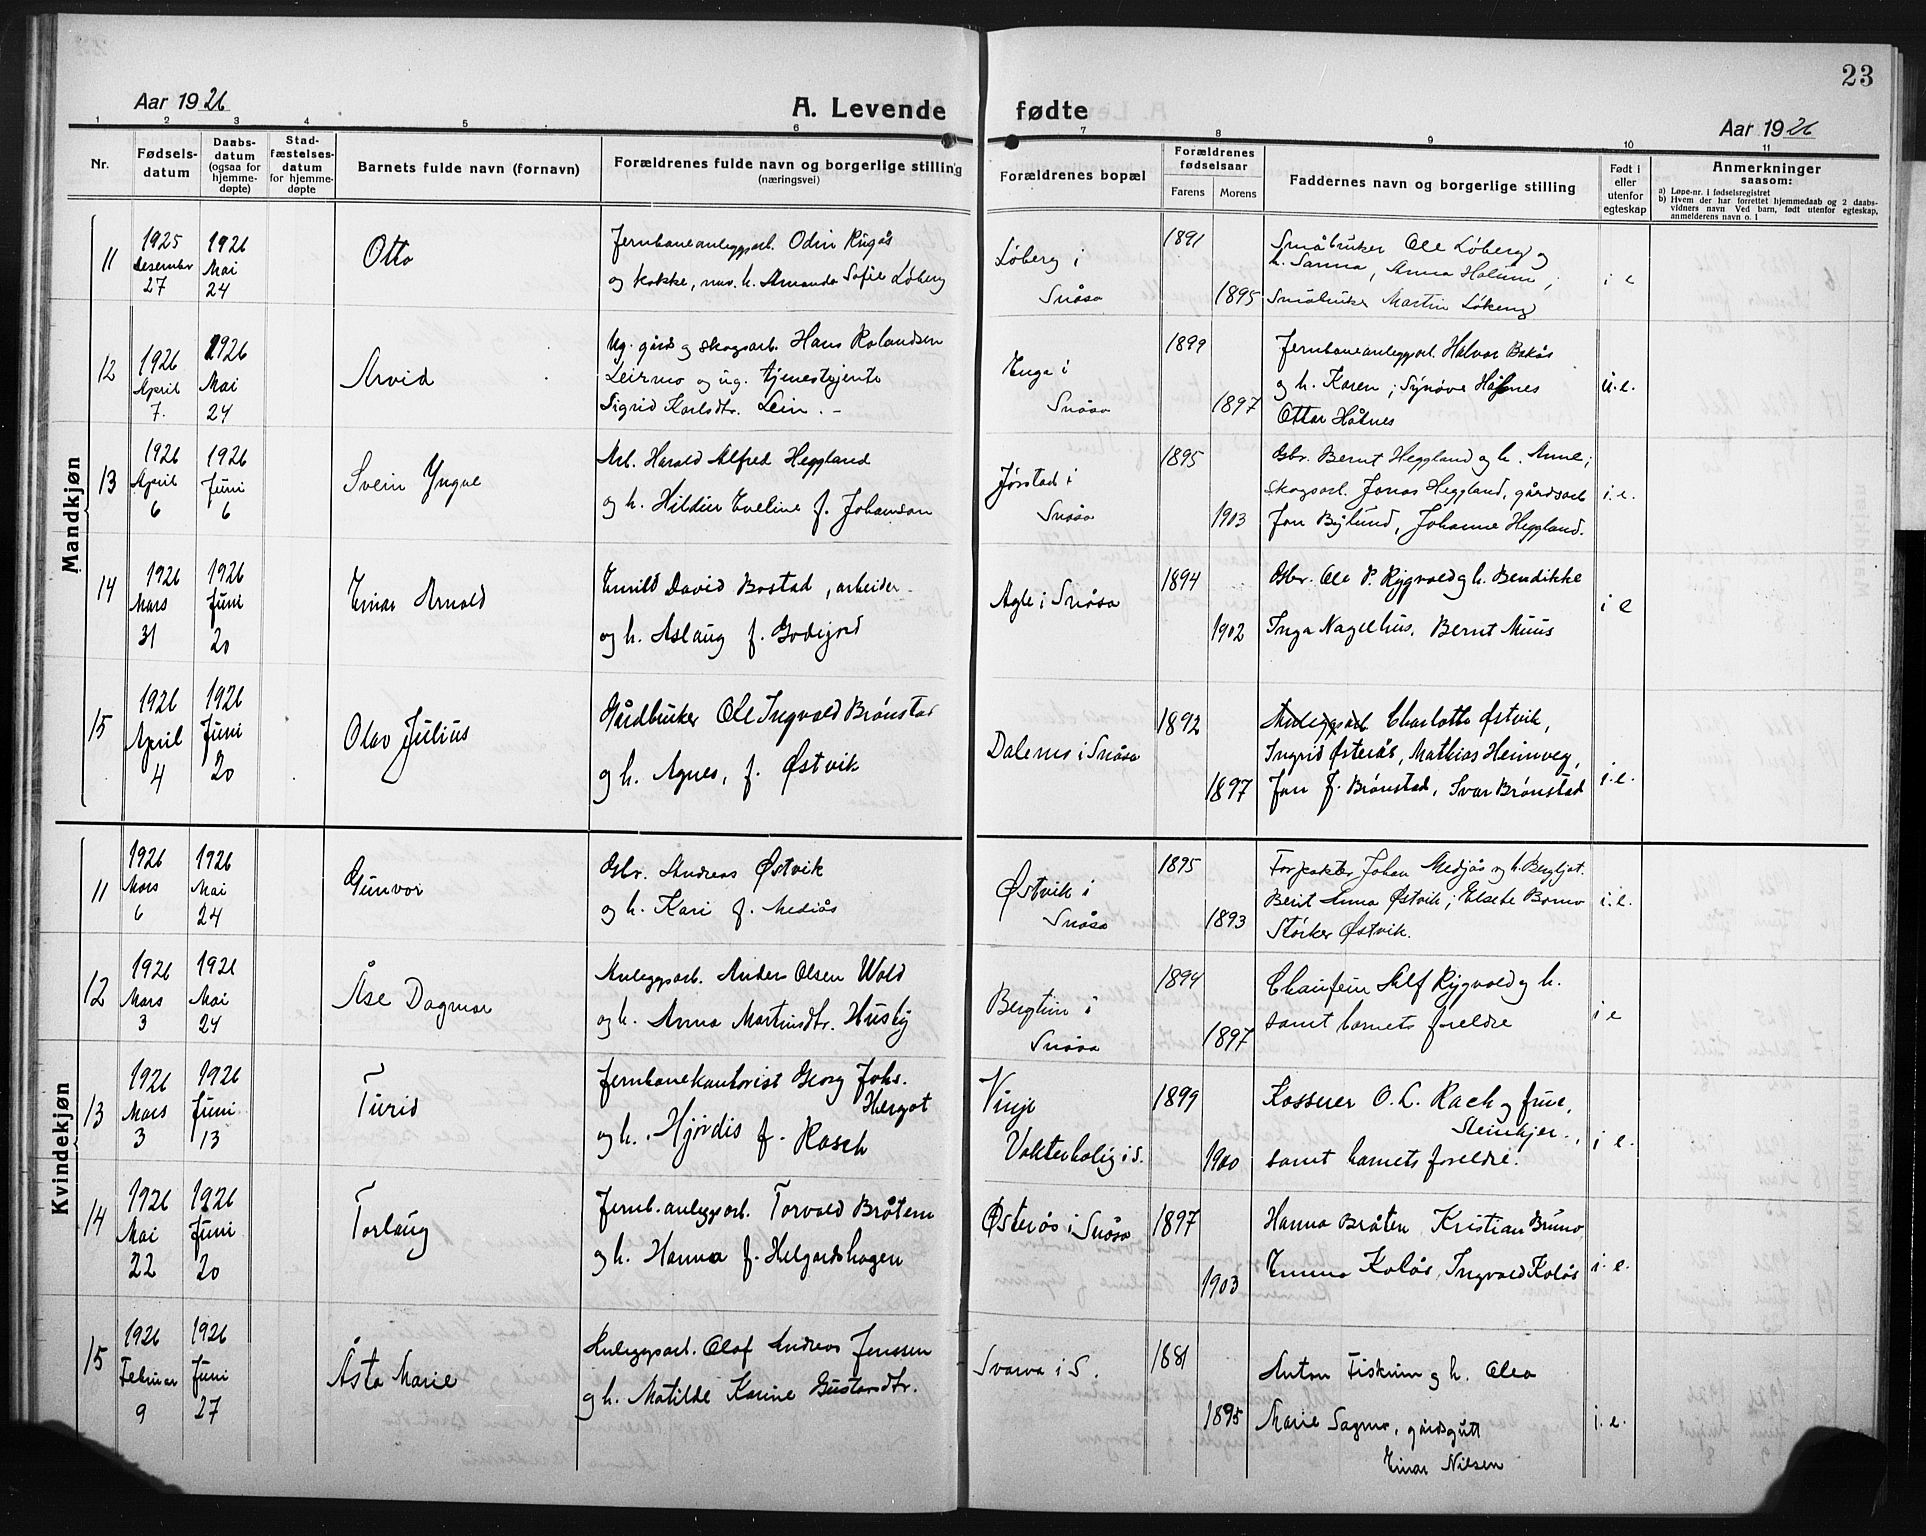 23
Aar 1926
A. Levende fødte
Aar 1926
1 2 3 4 5 6 7 8 9 10 11
Nr.
Fødselsdatum
Daabsdatum (ogsaa for hjemmedøpte)
Stadfæstelsesdatum for hjemmedøpte
Barnets fulde navn (fornavn)
Forældrenes fulde navn og borgerlige stilling (næringsvei)
Forældrenes bopæl
Forældrenes fødselsaar
Farens Morens
Faddernes navn og borgerlige stilling
Født i eller utenfor egteskap
Anmerkninger saasom:
a) Løpe-nr. i fødselsregistret
b) Hvem der har forrettet hjemmedaab og 2 daabsvidners navn Ved barn, født utenfor egteskap, anmelderens navn o. l
Mandkjøn
11
1925 Desember 27
1926 Mai 24
Otto
Jernbaneanleggsarb. Odin Rugås
og kokke, nuv. h. Amanda Sofie Løberg
Løberg i
Snåsa
1891
1895
Småbruker Ole Løberg og
h. Sanna, Anna Holum;
Småbruker Martin Løkeng
i e
12
1926 April 7.
1926 Mai 24
Arvid
Ug. gårds og skogsarb. Hans Rolandsen
Leirmo og ug. tjenestejente
Sigrid Karlsdtr. Lein. –
Enga i
Snåsa
1899
1897
Jernbaneanleggsarb. Halvor Bakås
og h. Karen; Synøve Håpnes
Ottar Håpnes
u.e.
13
1926 April 6
1926 Juni 6
Svein Yngve
Arb. Harald Alfred Heggland
og h. Hildur Eveline f. Johanson
Jørstad i
Snåsa
1895
1903
Gbr. Bernt Heggland og h. Anne;
skogsarb. Jonas Heggland, gårdsarb
Jon Bylund, Johanne Heggland.
i.e.
14
1926 Mars 31
1926 Juni 20
Einar Arnold
Emild David Bostad, arbeider
og h. Aslaug f. Godejord
Agle i Snåsa
1894
1902
Gbr. Ole P. Rygvold og h. Bendikke
Inga Nagelhus. Bernt Muus
i e
15
1926 April 4
1926 Juni 20
Olav Julius
Gårdbruker Ole Ingvald Brønstad
og h. Agnes, f. Østvik
Dalems i Snåsa
1892
1897
Anleggsarb Charlotte Østvik,
Ingrid Østerås, Mathias Heimveg,
Jon J. Brønstad, Ivar Brønstad
i.e.
Kvindekjøn
11
1926 Mars 6
1926 Mai 24
Gunvor
Gbr. Andreas Østvik
og h. Kari f. Mediås
Østvik i
Snåsa
1895
1893
Forpakter Johan Medjås og h. Bergljot.
Berit Anna Østvik; Elsebe Bomo
Størker Østvik.
i.e.
12
1926 Mars 3
1926 Mai 24
Åse Dagmar
Anleggsarb. Anders Olsen Wold
og h. Anna Martinsdtr. Husby
Bergtun i
Snåsa
1894
1897
Chauffeur Alf Rygvold og h.
samt barnets foreldre
i e
13
1926 Mars 3
1926 Juni 13
Turid
Jernbanekontorist Georg Johs. Hergot
og h. Hjørdis f. Rasch
Vinje
Vokterbolig i S.
1899
1900
Kasserer O. L. Rach og frue,
Steinkjer.,
samt barnets foreldre.
i e.
14
1926 Mai 22
1926 Juni 20
Torlaug
Jernb.anleggsarb. Torvald Bråten
og h. Hanna f. Helgardshagen
Østerås i Snåsa
1897
1903
Hanna Bråten, Kristian Bruvo
Emma Kolås, Ingvald Kolås
i. e.
15
1926 Februar 9
1926 Juni 27
Åsta Marie
Anleggsarb. Olaf Andreas Jenssen
og h. Matilde Karine Gustavsdtr.
Svarva i S.
1881
1895
Anton Fiskum og h. Olea
Marie Sagmo, gårdsgutt
Einar Nilsen
i. e.